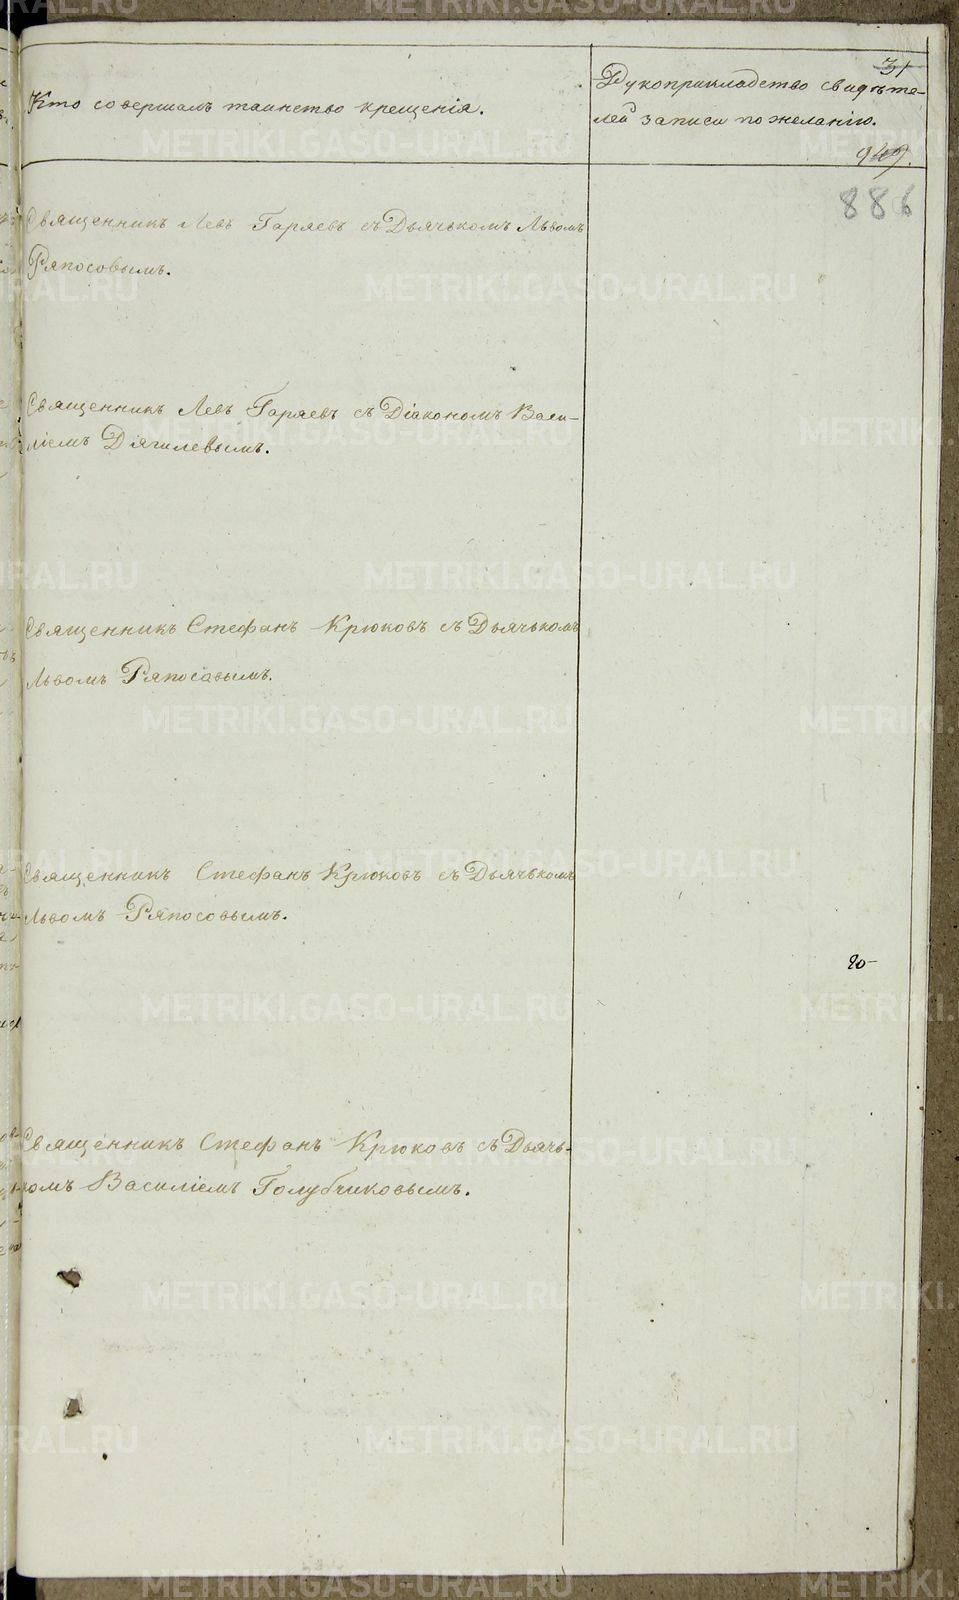 31
Кто совершалъ таинство крещенія.
Рукоприкладство свидѣте-
лей записи по желанію.
949.
886
Священникъ Левъ Гаряевъ съ Дьячькомъ Львомъ
Ряпосовымъ.
Священникъ Левъ Гаряевъ съ Діакономъ Васи-
ліемъ Дягилевымъ.
Священникъ Стефанъ Крюковъ съ Дьячькомъ
Львомъ Ряпосовымъ.
Священникъ Стефанъ Крюковъ съ Дьячькомъ
Львомъ Ряпосовымъ.
Священникъ Стефанъ Крюковъ съ Дьячь-
комъ Василіемъ Голубчиковымъ.
METRIKI.GASO-URAL.RU